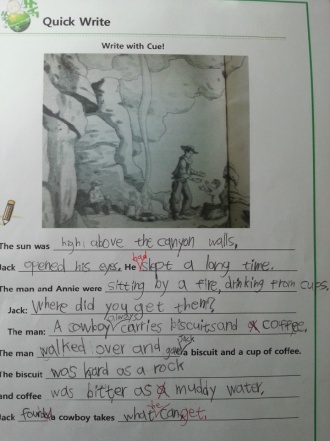 Quick Write
Write with Cue!
The sun was high above the canyon walls.
Jack opened his eyes. He had slept a long time.
The man and Annie were sitting by a fire, drinking from cups.
Jack: Where did you get them?
The man: A cowboy always carries biscuits and a coffee.
The man walked over and gave Jack a biscuit and a cup of coffee.
The biscuit was hard as a rock
and coffee was bitter as a muddy water.
Jack founded a cowboy takes what he can get.